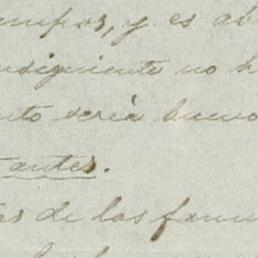 campos, y es ab
nsiguiente no h
nto seria bueno
tantes.
es de las fami